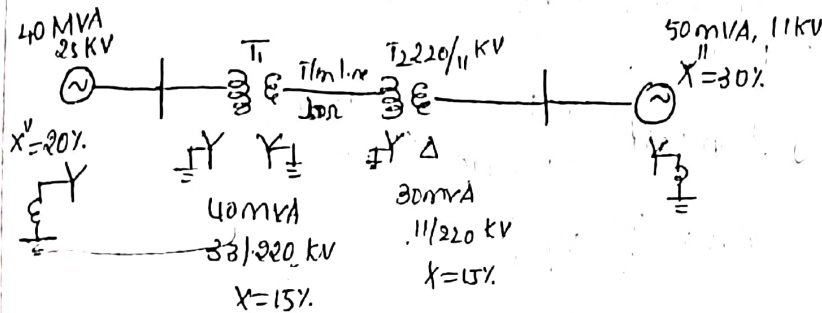 40 MVA
25 KV
T1
T/m line
T2 220/11 KV
50 mVA, 11KV
X"=30%
X"=20%
Y
Y
Y
Y Δ
Y
40 MVA
33/220 KV
X=15%
30 mVA
11/220 KV
X=15%